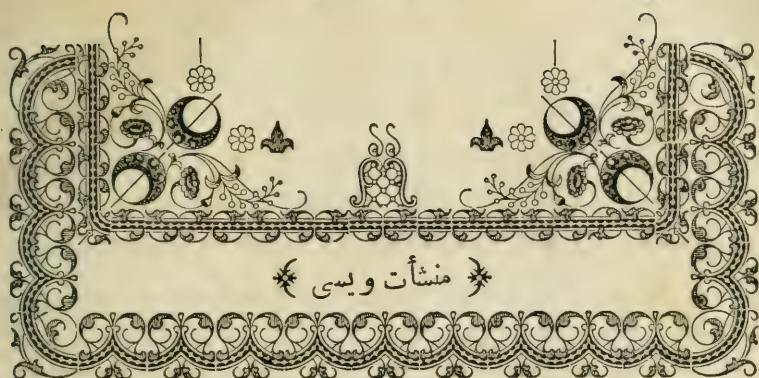 منشأت ويسى